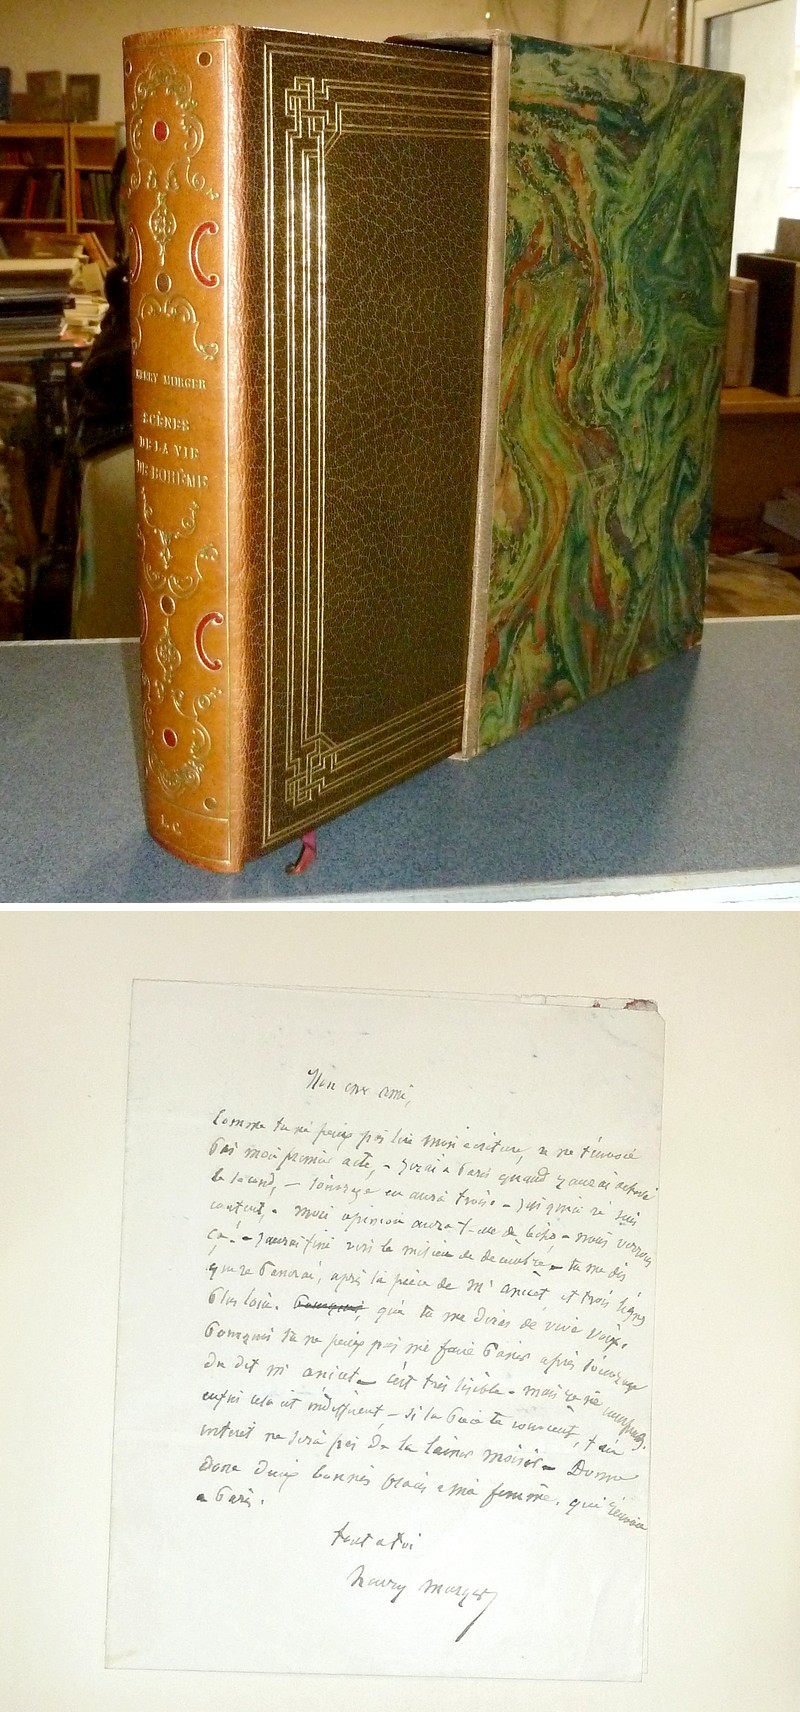 HENRY MURGER
SCÈNES
DE LA VIE
DE BOHÈME
L.C.
Mon cher ami,
Comme tu ne peux pas lire mon écriture, je ne t'envoie
pas mon premier acte, - j'irai à Paris quand j'aurai achevé
le second, - l'ouvrage en aura trois - jusqu'ici je suis
content, - mon opinion aura - nous verrons
ça. - j'aurai fini vers le milieu de décembre - tu me dis
qu'on après la pièce de Mr anicet et trois lignes
plus loin. Pourquoi, que tu me diras de vive voix.
Pourquoi tu ne peux pas me faire après l'ouvrage
du dit Mr anicet - c'est très lisible - mais je ne
enfin cela est indifférent, - si la pièce te convient, ton
intérêt ne sera pas de la laisser moisir - Donne
donc deux bonnes places à ma femme, qui
à Paris.
tout à toi
henry murger